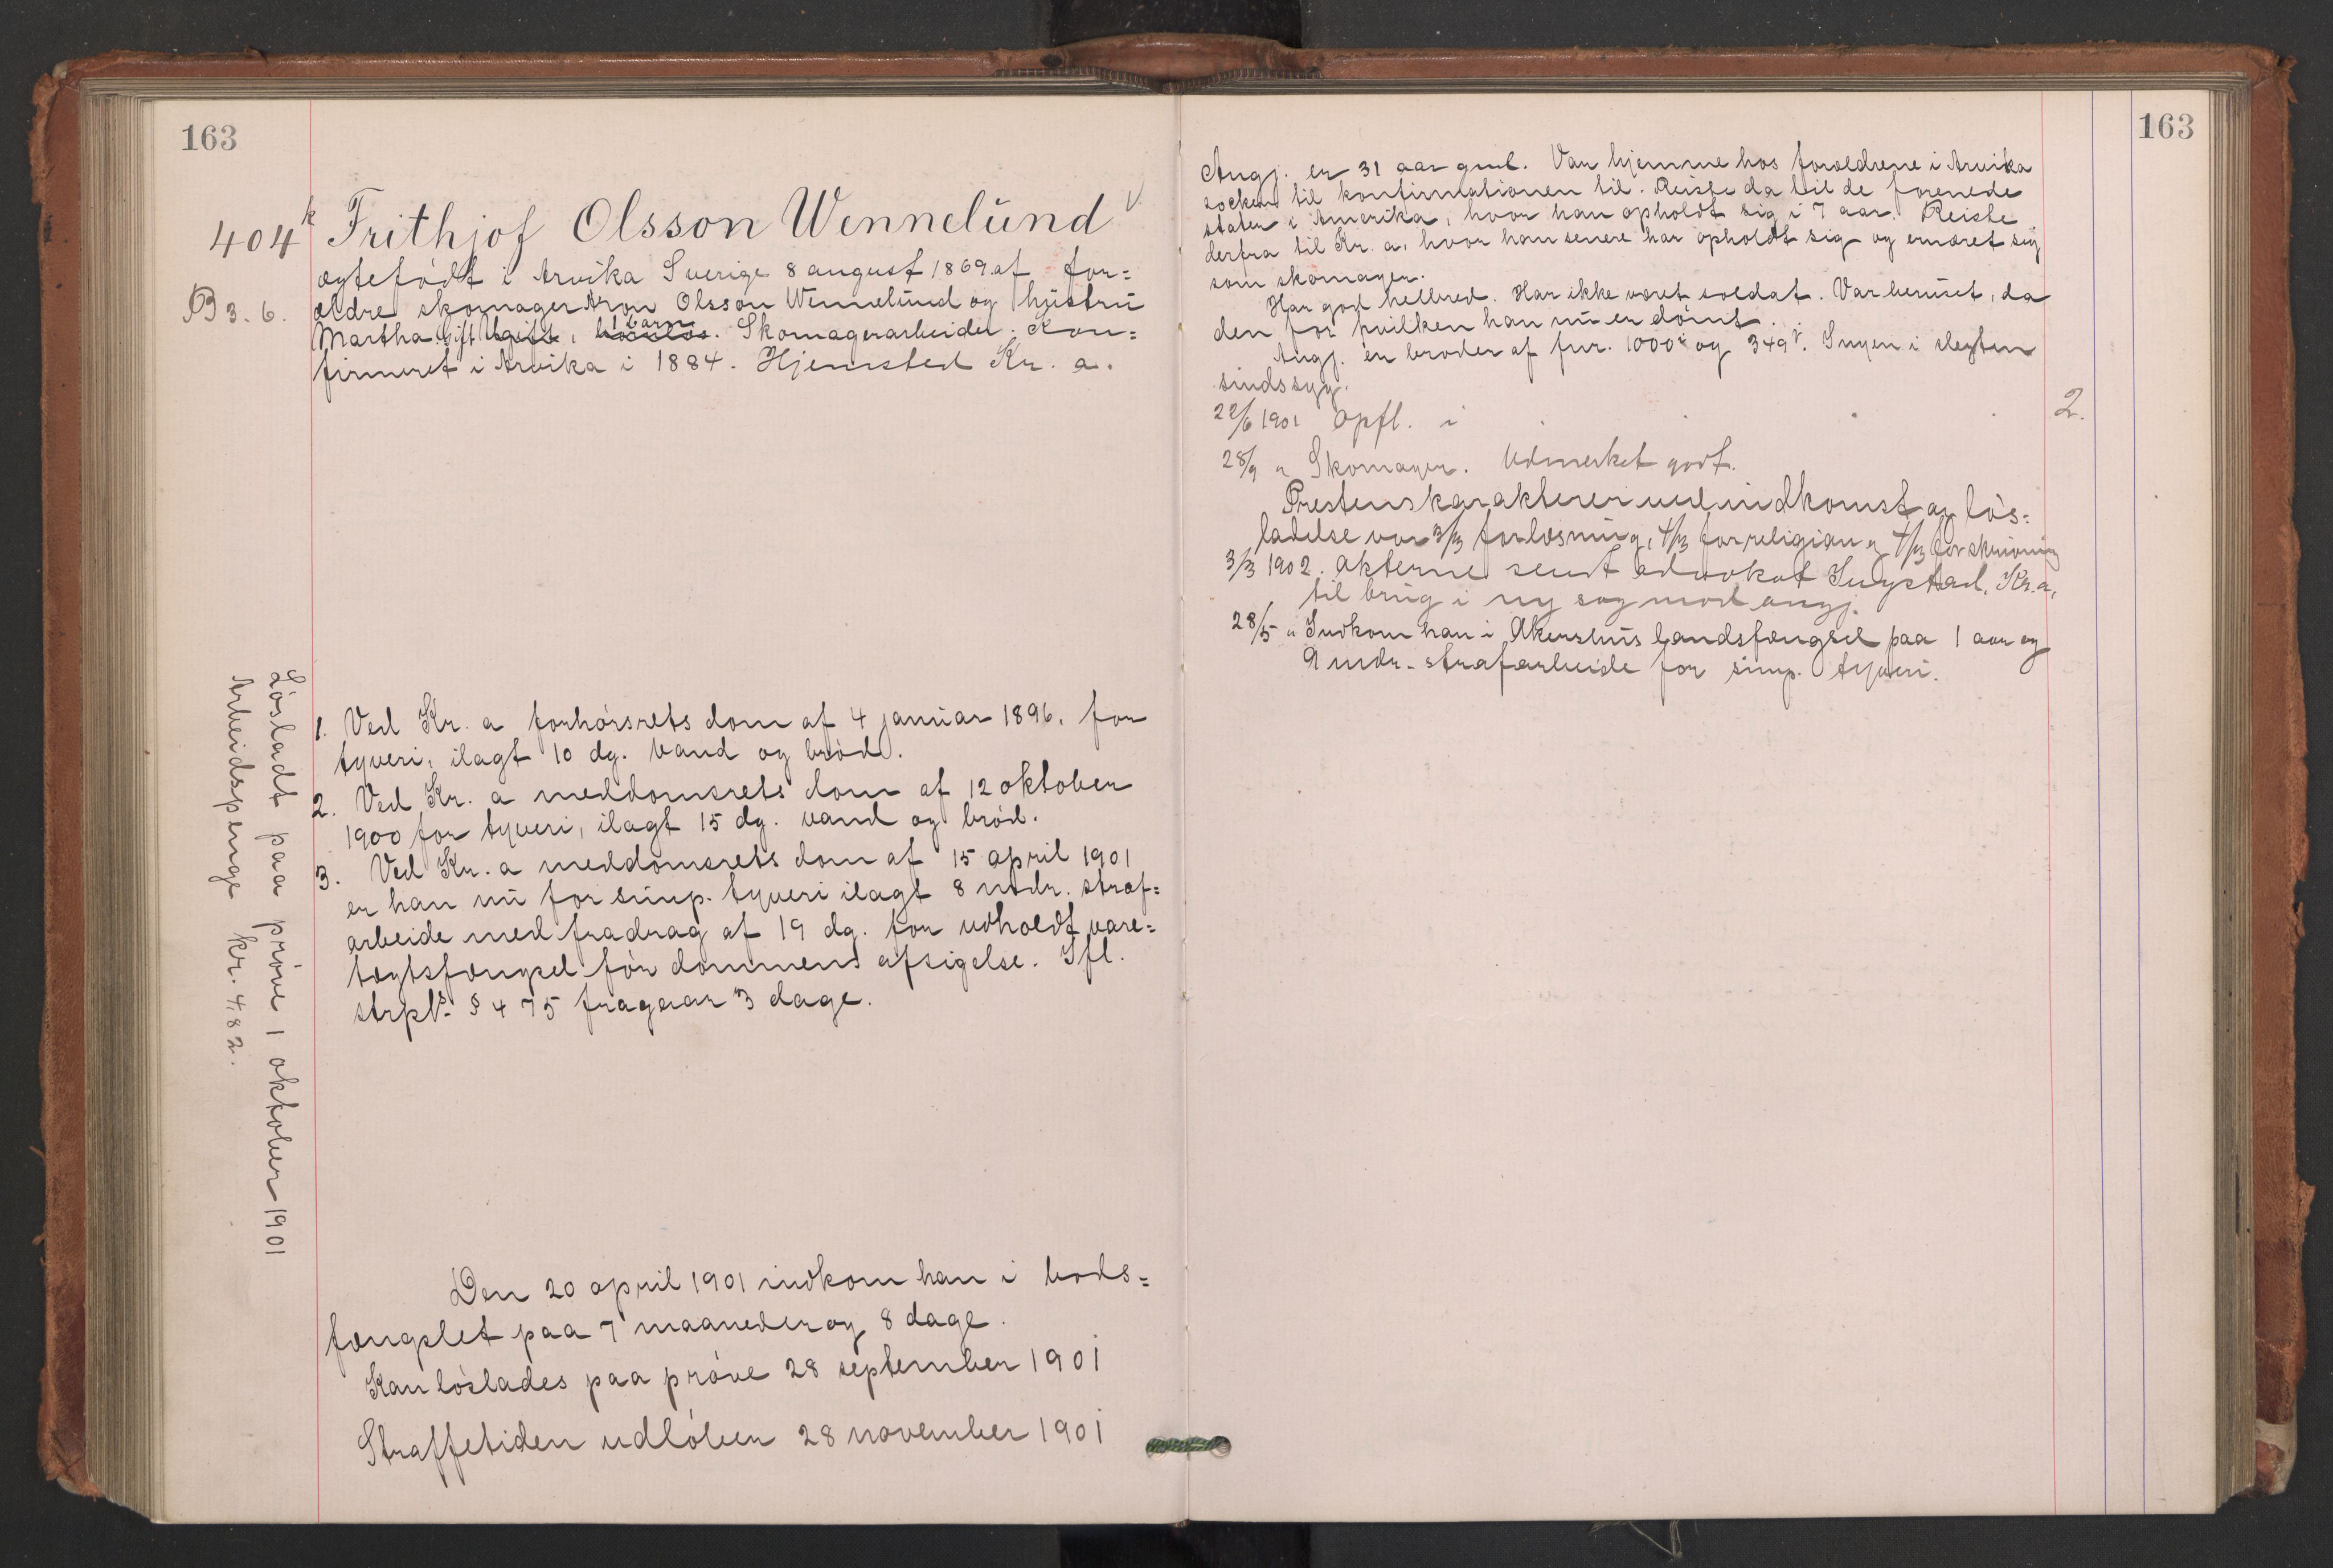 163
404k Frithjof Olsson Wennelund v
ægtefödt i Arvika Sverige 8 august 1869 af for=
B 3. 6. ældre skomager Aron Olsson Wennelund og hustru
Martha. Gift Ugift, 1 barn barnløs. Skomagerarbeider. Kon=
firmeret i Arvika i 1884. Hjemsted Kr. a.
1. Ved Kr. a forhörsrets dom af 4 januar 1896, for
tyveri, ilagt 10 dg. vand og bröd.
2. Ved Kr. a meddomsrets dom af 12 oktober
1900 for tyveri, ilagt 15 dg. vand og bröd.
3. Ved Kr. a meddomsrets dom af 15 april 1901
er han nu for simp. tyveri ilagt 8 mdr. straf=
arbeide med fradrag af 19 dg. for udholdt vare=
tægtsfængsel för dommens afsigelse. Ifl.
strpl. § 475 fragaar 3 dage.
Den 20 april 1901 indkom han i bods=
fængslet paa 7 maaneder og 8 dage.
Kan löslades paa pröve 28 september 1901
Straffetiden udlöben 28 november 1901
Löslladt paa pröve 1 oktober 1901
Arbeidspenge kr. 4,82.
163
Angj. er 31 aar gml. Var hjemme hos forældrene i Arvika
socken til konfirmationen til. Reiste da til de forenede
stater i Amerika, hvor han opholdt sig i 7 aar. Reiste
derfra til Kr. a, hvor han senere har opholdt sig og ernæret sig
som skomager.
Har god helbred. Har ikke været soldat. Var beruset, da
den for hvilken han nu er dömt.
Angj. er broder af fnr. 1000 i og 349 v. Ingen i slegten
sindssyg.
22/6 1901 Opfl. i 2.
28/9 " Skomager. Udmerket godt.
Prestens karakterer ved indkomst og lös=
ladelse var 3/3 for læsning, 4/3 for religion og 4/3 for skrivning
3/3 1902. Akterne sendt advokat Ingstad, Kr. a,
til brug i ny sag mod angj.
28/5 " Indkom han i Akershus landsfængsel paa 1 aar og
9 mdr. strafarbeide for simp. tyveri.